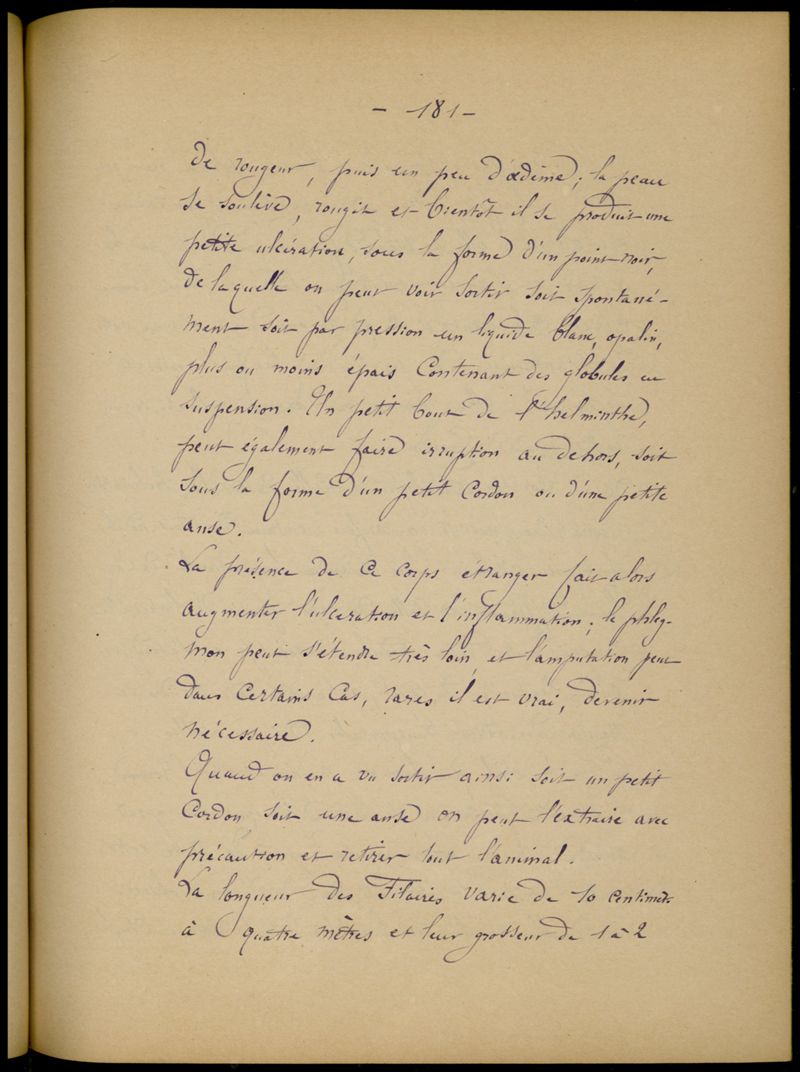 - 181 -
de rougeur, puis un peu d'œdème; la peau
se soulève, rougit et bientôt il se produit une
petite ulcération, sous la forme d'un point noir,
de laquelle on peut voir sortir soit spontané-
ment soit par pression un liquide blanc, opalin,
plus ou moins épais contenant des globules en
suspension. Un petit bout de l'helminthe,
peut également faire irruption au dehors, soit
sous la forme d'un petit cordon ou d'une petite
anse.
La présence de ce corps étranger fait alors
augmenter l'ulceration et l'inflammation; le phleg-
mon peut s'étendre très loin, et l'amputation peut
dans certains cas, rares il est vrai, devenir
nécessaire.
Quand on en a vu sortir ainsi soit un petit
cordon, soit une anse on peut l'extraire avec
précaution et retirer tout l'animal.
La longueur des Filaires varie de 10 centimèt.
à quatre mètres et leur grosseur de 1 à 2